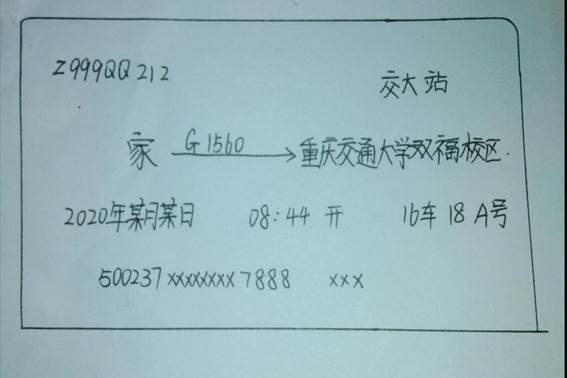 Z999QQ212
交大站
家 G1560 重庆交通大学双福校区.
2020年某月某日 08:44 开 16车 18 A号
500237xxxxxxxx7888 xxx